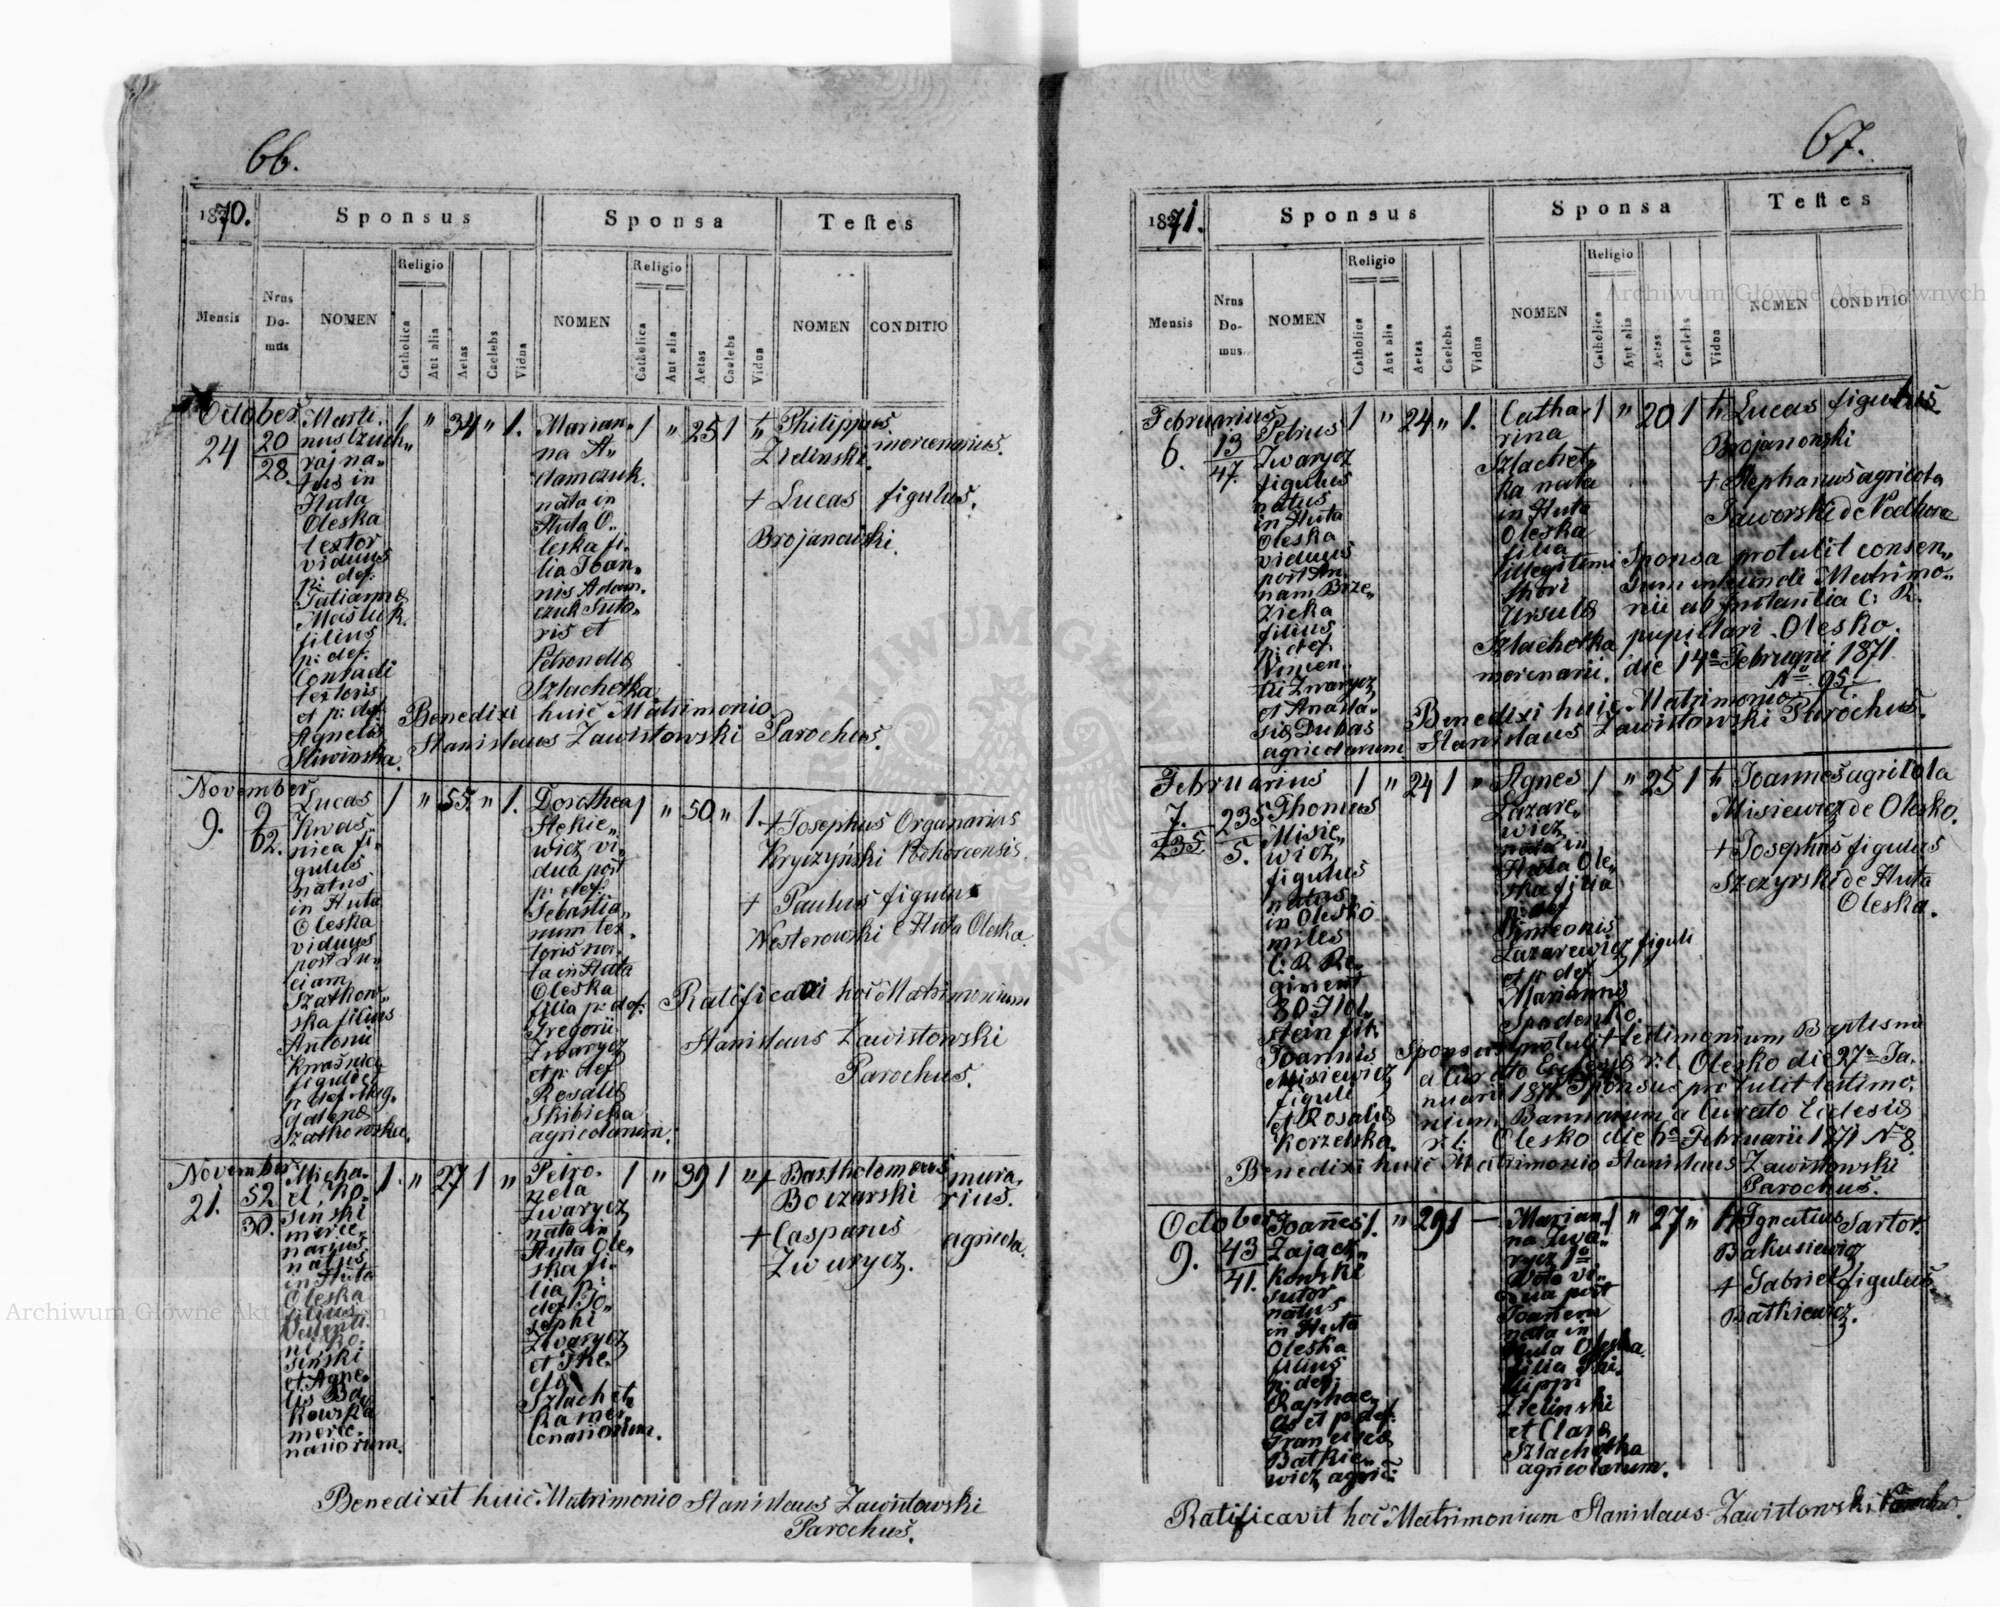 66.
1870.
Sponsus
Sponsa
Testes
Mensis
Nrus
Do-
mus
NOMEN
Religio
Catholica
Aut alia
Aetas
Caelebs
Vidua
NOMEN
Religio
Catholica
Aut alia
Aetas
Caelebs
Vidua
NOMEN
CONDITIO
October
24
20
28.
Marti-
nus
raj na-
tus in
Huta
Oleska
textor
viduus
p: def:
Tatianna
Maśluk.
filius
p: def:
Conradi
textoris
et p: def
Agnetis
Sliwinska.
1 " 34 " 1.
Marian-
na A-
damczuk.
nata in
Huta O-
leska fi-
lia Ioan-
nis Adam-
czuk suto-
ris et
Petronella
Szlachetka
1 " 25 1 "
+ Philippus mercenarius.
Zielinski.
+ Lucas figulus.
Brojanowski.
Benedixi huic Matrimonio
Stanislaus Zawistowski Parochus.
November
9.
9
62.
Lucas
Kwaś
nica fi-
gulus
natus
in Huta
Oleska
viduus
post Lu-
ciam
Szatkow-
ska filius
Antonii
Kwaśnica
figuli et
p: def Mag-
dalena
Szatkowska.
1 " 55. " 1.
Dorothea
Stekie-
wicz vi-
dua post
p: def:
Sebastia-
num tex-
toris na-
ta in Huta
Oleska
filia p: def:
Gregorii
Zwarycz
et p: def
Rosalia
Skibicka
agricolarum.
1 " 50 " 1.
+ Josephus Organarius
Kryczyński Podhorcensis.
+ Paulus figulus
Westerowski e Huta Oleska.
Ratificavi hoc Matrimonium
Stanislaus Zawistowski
Parochus.
November
21.
52
30.
Micha-
el Ko-
siński
merce-
narius
natus
in Huta
Oleska
filius
ni Ko-
siński
et Agne-
tis Ba-
kowska
merce-
nariorum.
1. " 27 1 "
Petro-
nela
Zwarycz
nata in
Huta Ole-
ska fi-
lia p:
def: Jo-
sephi
Zwarycz
et The-
cla
Szlachet-
ka mer-
cenariorum.
1 " 39 1 "
+ Bartholomaeus mura-
Boczarski rius.
+ Casparus agricola.
Zwarycz.
Benedixit huic Matrimonio Stanislaus Zawistowski
Parochus.
67.
1871.
Sponsus
Sponsa
Testes
Mensis
Nrus
Do-
mus
NOMEN
Religio
Catholica
Aut alia
Aetas
Caelebs
Vidua
NOMEN
Religio
Catholica
Aut alia
Aetas
Caelebs
Vidua
NOMEN
CONDITIO
Februarius
6.
13
47.
Petrus
Zwarycz
figulus
natus
in Huta
Oleska
viduus
post An-
nam Brze-
zicka
filius
p: def
Vincen-
tii Zwarycz
et Anasta-
sia Dubas
agricolarum.
1 " 24 " 1.
Catha-
rina
Szlachet-
ka nata
in Huta
Oleska
filia
illegitimi
thori
Ursula
Szlachetka
mercenarii.
1 " 20 1
+ Lucas figulus
Brojanowski
+ Stephanus agricola
Jaworski de Podhorce
Sponsa protulit consen-
sum ineundi Matrimo-
nii ab Instantia C: R.
pupillari Olesko.
die 14a Februarii 1871
No 95.
Benedixi huic Matrimonio
Stanislaus Zawistowski Parochus.
Februarius
7.
235
235
5.
Thomas
Misie-
wicz
figulus
natus
in Olesko
miles
C: R Re-
giment
30
fil:
Joannis
Misiewicz
figuli
et Rosalia
Korzelska.
1 " 24 1 "
Agnes
Lazare-
wicz
nata in
Huta Ole-
ska filia
p: def
Simeonis
Lazarewicz figuli
et p: def
Marianna
Spodenko.
1 " 25 1
+ Joannes agricola
Misiewicz de Olesko.
+ Josephus figulus
Szczyrski de Huta
Oleska.
Sponsus protulit testimonium Baptismi
a Curato Ecclesia r. l. Olesko die 27a Ja-
nuarii 1871 Sponsus protulit testimo-
nium Bannarum a Curato Eclesia
r. l: Olesko die 6a Februarii 1871 No 8.
Benedixi huic Matrimonio Stanislaus Zawistowski
Parochus.
October
9.
43
41.
Joannes
Zajacz-
kowski
sutor
natus
in Huta
Oleska
filius
p: def:
Raphae-
lis et p: def:
Francisca
Batkie-
wicz agric:
1. " 29 1 —
Marian-
na Zwa-
rycz 1o
Voto vi-
dua post
Joanem
nata in
Huta Oleska.
filia Phi-
lippi
Zielinski
et Clara
Szlachetka
agricolarum.
1 " 27 "
+ Ignatius Sartor.
Bakusiewicz
+ Gabriel figulus.
Batkiewicz.
Ratificavit hoc Matrimonium Stanislaus Zawistowski Parochus.
Archiwum Główne Akt Dawnych
Archiwum Główne Akt Dawnych